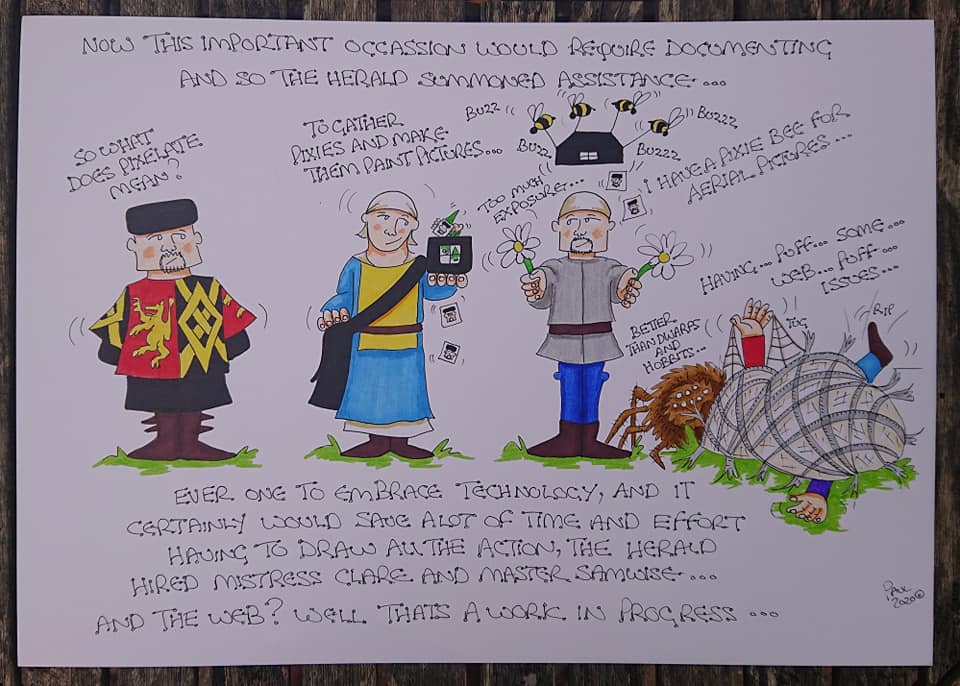 NOW THIS IMPORTANT OCCASSION WOULD REQUIRE DOCUMENTING
AND SO THE HERALD SUMMONED ASSISTANCE...
SO WHAT
DOES PIXELATE
MEAN?
TO GATHER
PIXIES AND MAKE
THEM PAINT PICTURES...
BUZZ
BUZZZ
BUZZ
BUZZZ
TOO MUCH
EXPOSURE...
I HAVE A PIXIE BEE FOR
AERIAL PICTURES...
HAVING... PUFF... SOME...
WEB... PUFF...
ISSUES...
BETTER
THAN DWARFS
AND
HOBBITS...
TUG
RIP
EVER ONE TO EMBRACE TECHNOLOGY, AND IT
CERTAINLY WOULD SAVE A LOT OF TIME AND EFFORT
HAVING TO DRAW ALL THE ACTION, THE HERALD
HIRED MISTRESS CLARE AND MASTER SAMWISE...
AND THE WEB? WELL THATS A WORK IN PROGRESS...
PAUL
2020©